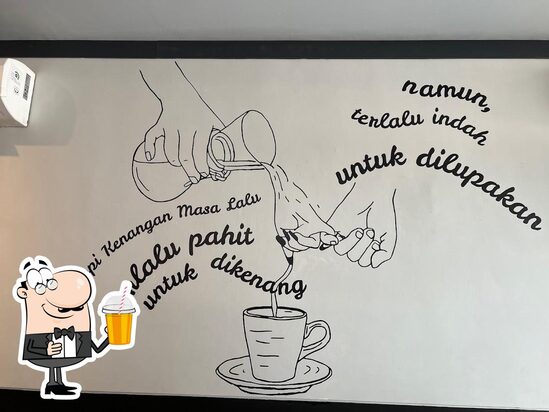 Kenangan Masa Lalu
lalu pahit
untuk dikenang
namun,
terlalu indah
untuk dilupakan